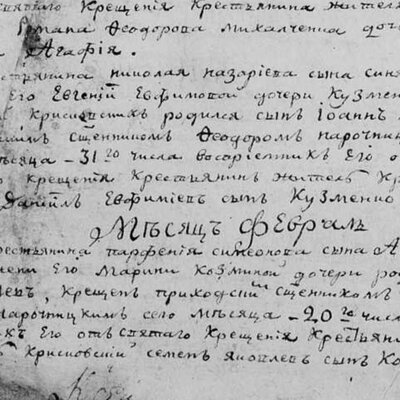 святаго Крещенія Крестьянина жителя
Романа Ѳеодорова Михалченка доч
Агафія.
стьянина николая назаріева сына
Его Евгеній Евфимовой дочери Кузмен
Крисковскихъ родился сынъ Іоаннъ
сщенникомъ Ѳеодоромъ нарочниц
Мѣсяца – 31го числа воспріемникъ Его о
крещенія Крестьянинъ житель Кр
Даніилъ Евфиміевъ сынъ Кузменко
Мѣсяцъ Февраль
рестьянина парфенія симеонова сына
жены Его Марини Козминой дочери ро
Крещенъ приходскимъ сщенникомъ
нарочницкимъ сего мѣсяца – 20го числ
къ Его отъ святаго Крещенія Крестьян
Крисковскій семенъ яковлевъ сынъ Ко